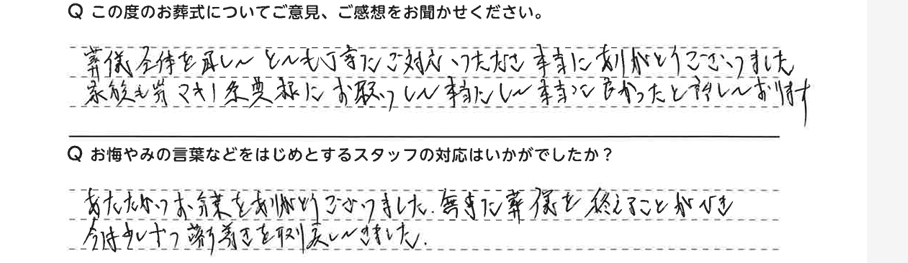 Q この度のお葬式についてご意見、ご感想をお聞かせください。
葬儀全体を通してとても丁寧にご対応いただき本当にありがとうございました
家族も皆マキノ祭典様にお願いして本当に良かったと話しております
Q お悔やみの言葉などをはじめとするスタッフの対応はいかがでしたか？
あたたかいお言葉をありがとうございました。無事に葬儀を終えることができ
今は少しずつ落ち着きを取り戻してきました。